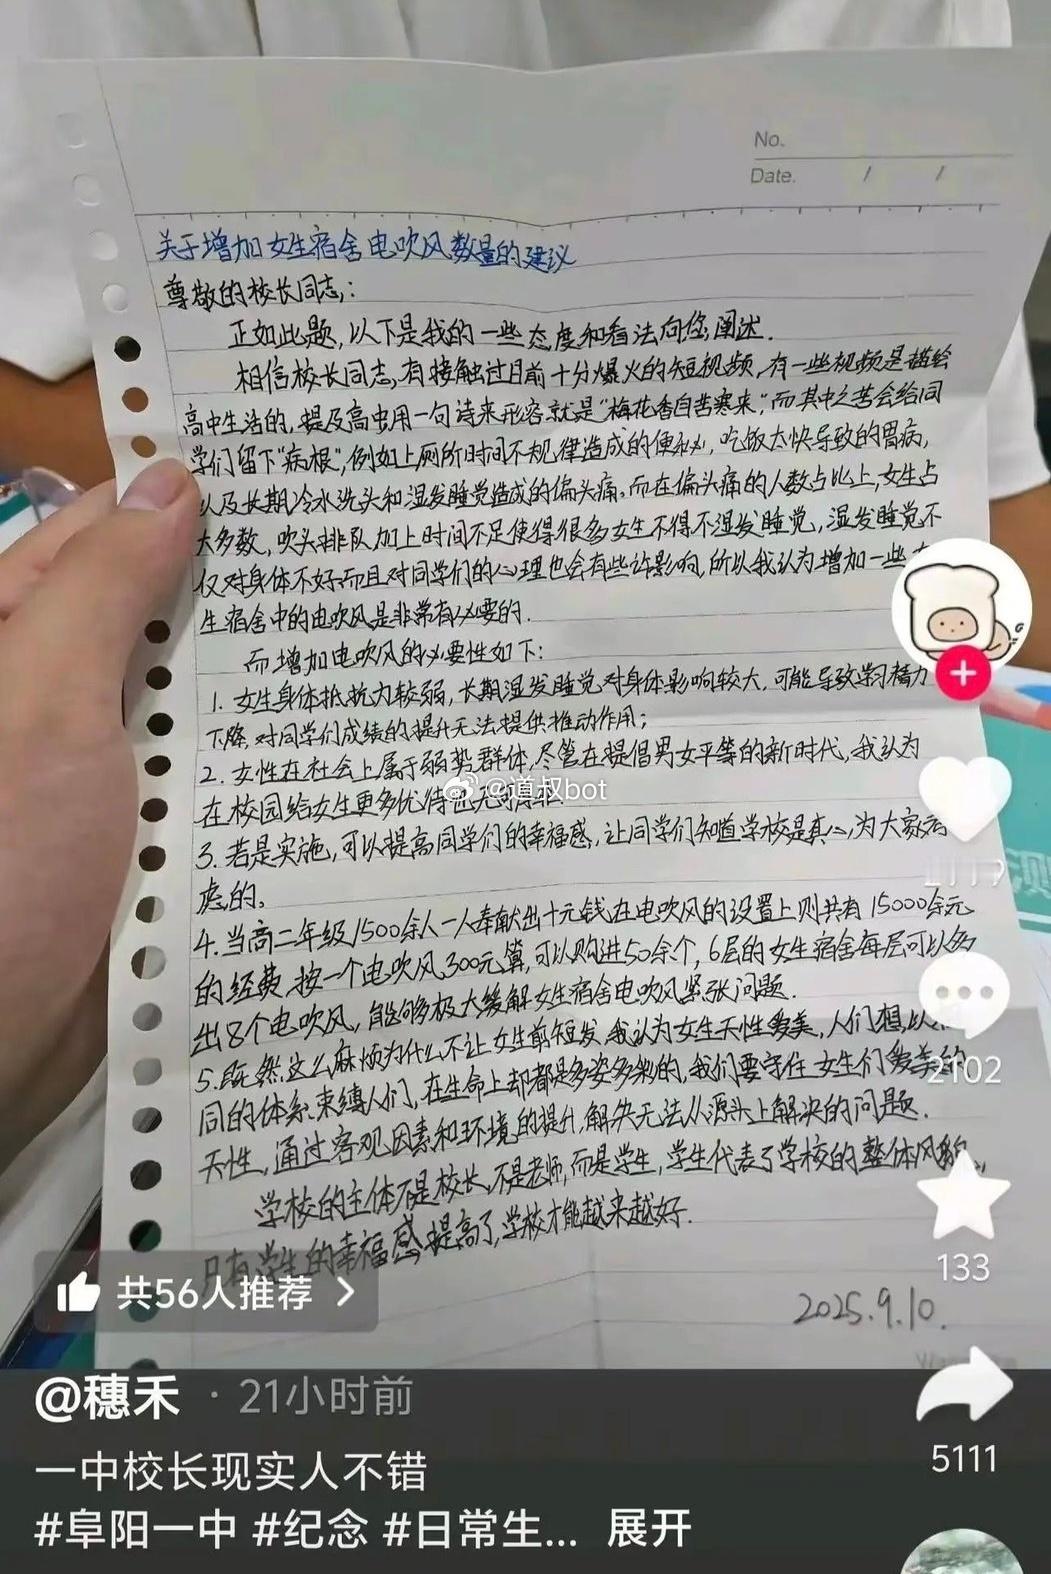 No.
Date. / /
关于增加女生宿舍电吹风数量的建议
尊敬的校长同志:
正如此题,以下是我的一些态度和看法向您阐述.
相信校长同志,有接触过目前十分爆火的短视频,有一些视频是描绘
高中生活的,提及高中用一句诗来形容就是“梅花香自苦寒来,”而其中之苦会给同
学们留下“病根”,例如上厕所时间不规律造成的便秘,吃饭太快导致的胃病,
以及长期冷水洗头和湿发睡觉造成的偏头痛,而在偏头痛的人数占比上,女生占
大多数,吹头排队加上时间不足使得很多女生不得不湿发睡觉,湿发睡觉不
仅对身体不好而且对同学们的心理也会有些许影响,所以我认为增加一些
生宿舍中的电吹风是非常有必要的.
而增加电吹风的必要性如下:
1. 女生身体抵抗力较弱,长期湿发睡觉对身体影响较大,可能导致学习精力
下降,对同学们成绩的提升无法提供推动作用;
2. 女性在社会上属于弱势群体,尽管在提倡男女平等的新时代,我认为
在校园给女生更多优待也无可厚非.
@道叔bot
3. 若是实施,可以提高同学们的幸福感,让同学们知道学校是真心为大家考
虑的。
4. 当高二年级1500余人一人奉献出十元钱在电吹风的设置上则共有15000余元
的经费,按一个电吹风300元算,可以购进50余个,6层的女生宿舍每层可以多
出8个电吹风,能够极大缓解女生宿舍电吹风紧张问题.
5. 既然这么麻烦为什么不让女生剪短发,我认为女生天性爱美,人们想以
同的体系束缚人们,在生命上却都是多姿多彩的,我们要守住女生们爱美的
天性,通过客观因素和环境的提升,解失无法从源头上解决的问题.
学校的主体不是校长,不是老师,而是学生,学生代表了学校的整体风貌,
只有学生的幸福感提高了,学校才能越来越好.
2025.9.10.
2102
133
5111
共56人推荐 >
@穗禾 · 21小时前
一中校长现实人不错
#阜阳一中 #纪念 #日常生... 展开